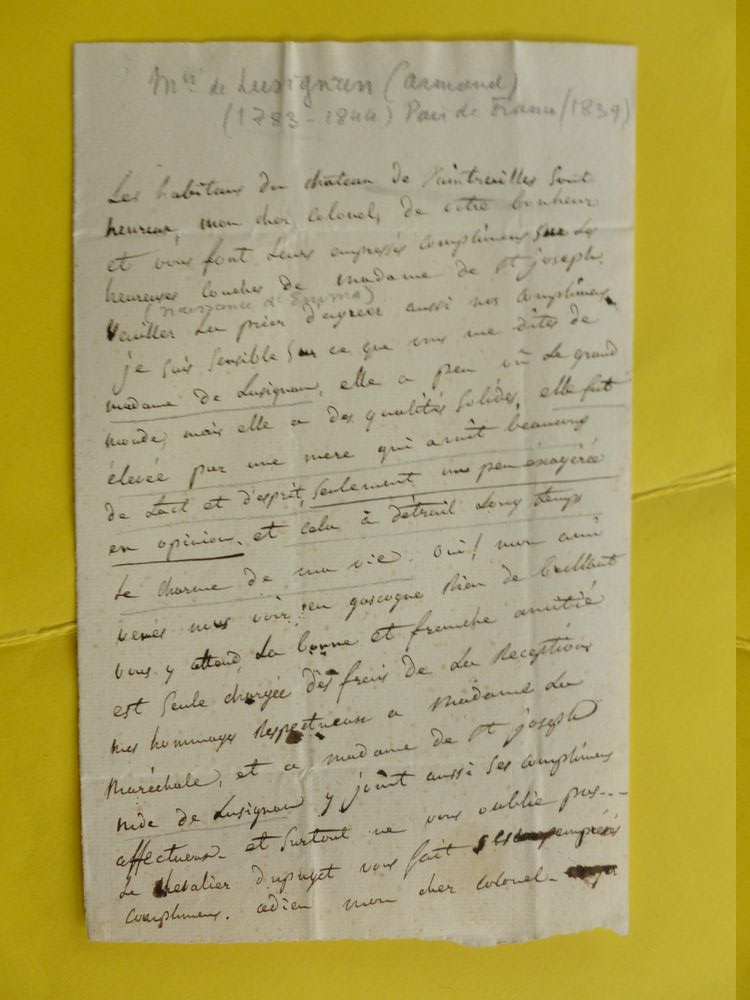 Mis de Lusignan (Armand)
(1783-1844) Pair de France (1839)
Les habitans du château de Xaintrailles sont
heureux, mon cher colonel, de votre bonheur
et vous font leurs empressés complimens sur les
heureuses couches de madame de St joseph.
(naissance d'Emma)
Veuiller la prier d'agreer aussi nos complimens,
je suis sensible sur ce que vous me dites de
madame de Lusignan, elle a peu vû le grand
monde, mais elle a des qualités solides, elle fut
élevée par une mere qui avoit beaucoup
de tact et d'esprit, seulement un peu éxagérée
en opinion, et cela à détruit long temps
le charme de ma vie. oui! mon ami
venés nous voir en gascogne rien de brillant
vous y attend, la bonne et franche amitié
est seule chargée des frais de la receptions
mes hommages respectueux a madame la
maréchale, et a madame de St joseph
mde de Lusignan y joint aussi ses complimens
affectueux. et surtout ne vous oublie pas---
Le chevalier dupuget vous fait ses empressés
complimens. adieu mon cher colonel-